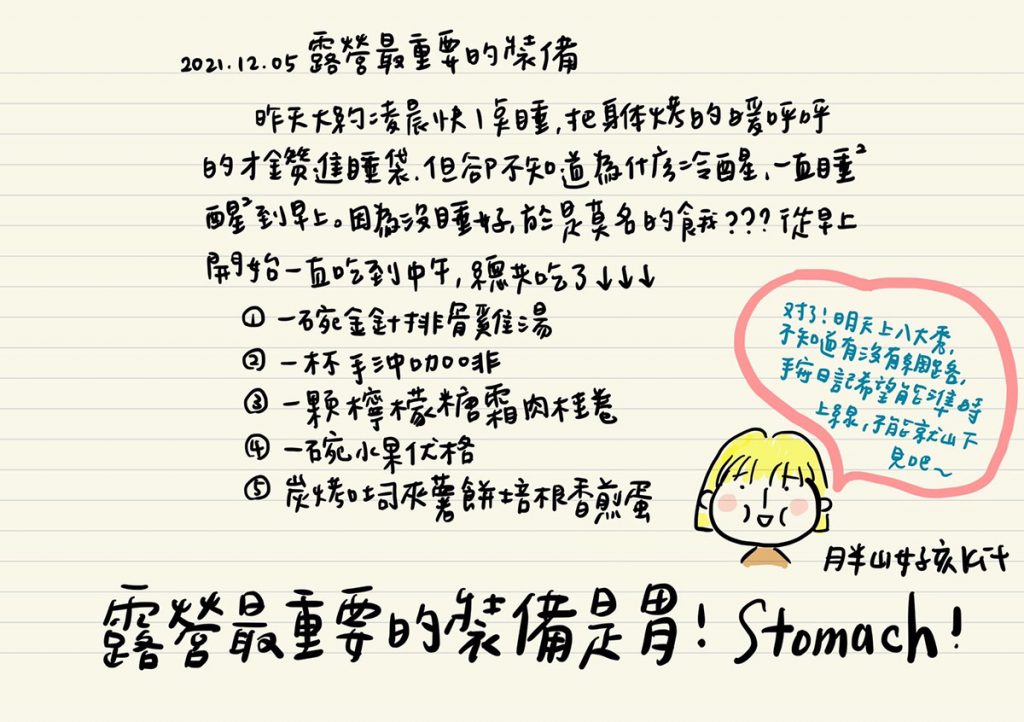 2021.12.05 露營最重要的裝備
昨天大約凌晨快1點睡,把身体烤的暖呼呼
的才鑽進睡袋.但卻不知道為什広冷醒、一直睡²
醒²到早上。因為沒睡好,於是莫名的餓???從早上
開始一直吃到中午,總共吃了↓↓↓
① 一碗金針排骨雞湯
② 一杯手沖咖啡
③ 一顆檸檬糖霜肉桂卷
④ 一碗水果优格
⑤ 炭烤吐司夾薯餅培根香煎蛋
对了!明天上八大秀,
不知道有沒有網路,
手寫日記希望能準時
上線,不能就山下
見吧~
胖山女孩Kit
露營最重要的裝備是胃! Stomach!